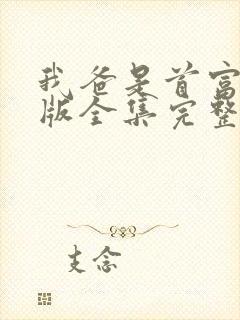 我爸是首富
版全集完整
支念